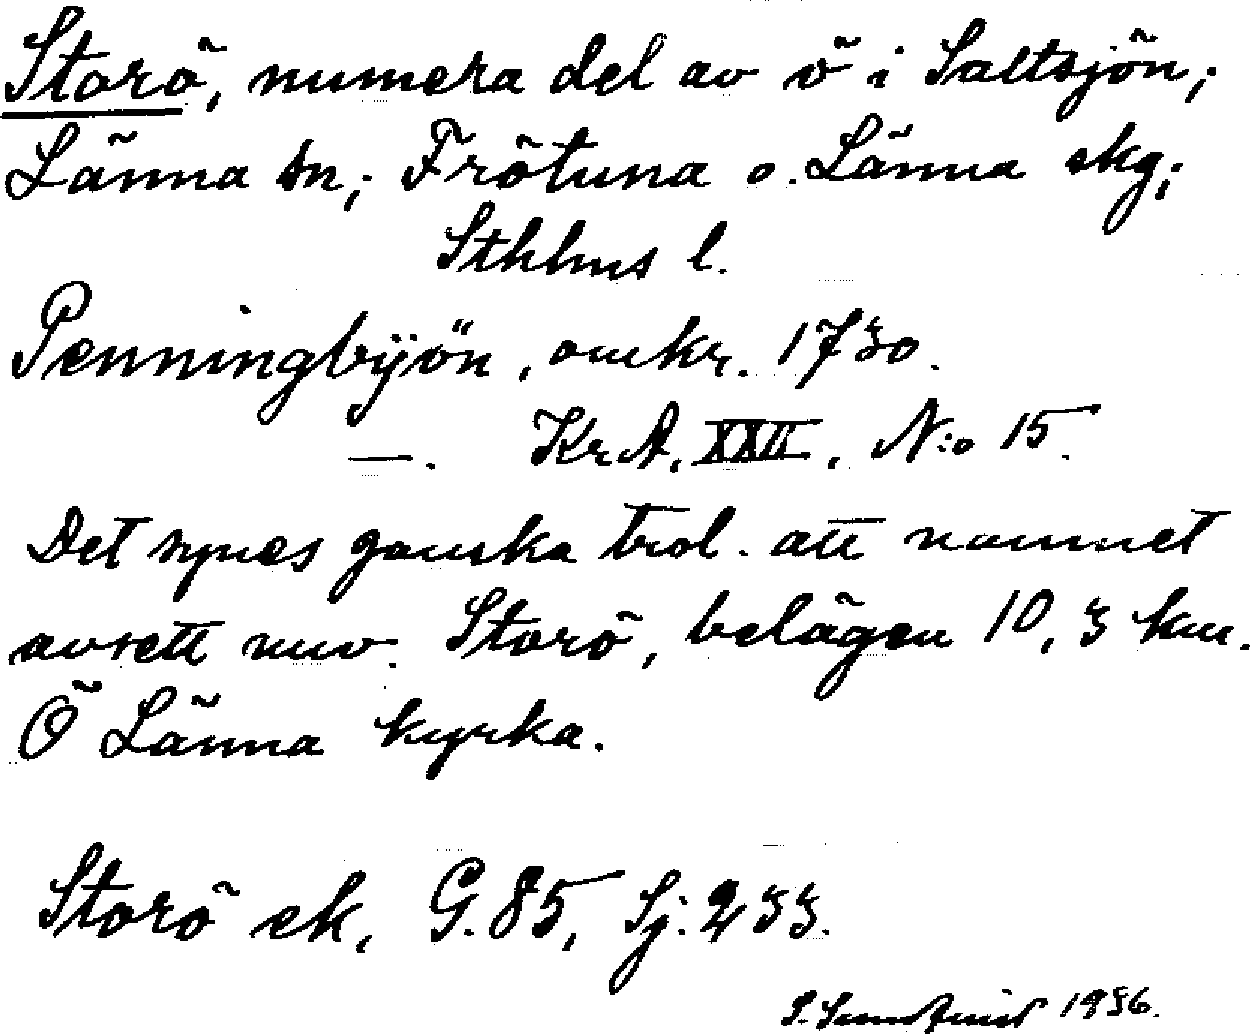 Storö, numera del av ö i Saltsjön;
Länna sn; Frötuna o. Länna skg;
Sthlms l.
Penningbyön, omkr. 1730.
—. Kr.A. XXII, N:o 15.
Det synes ganska trol. att namnet
avsett nuv. Storö, belägen 10,3 km.
Ö Länna kyrka.
Storö ek, G.85, Sj:233.
1936.